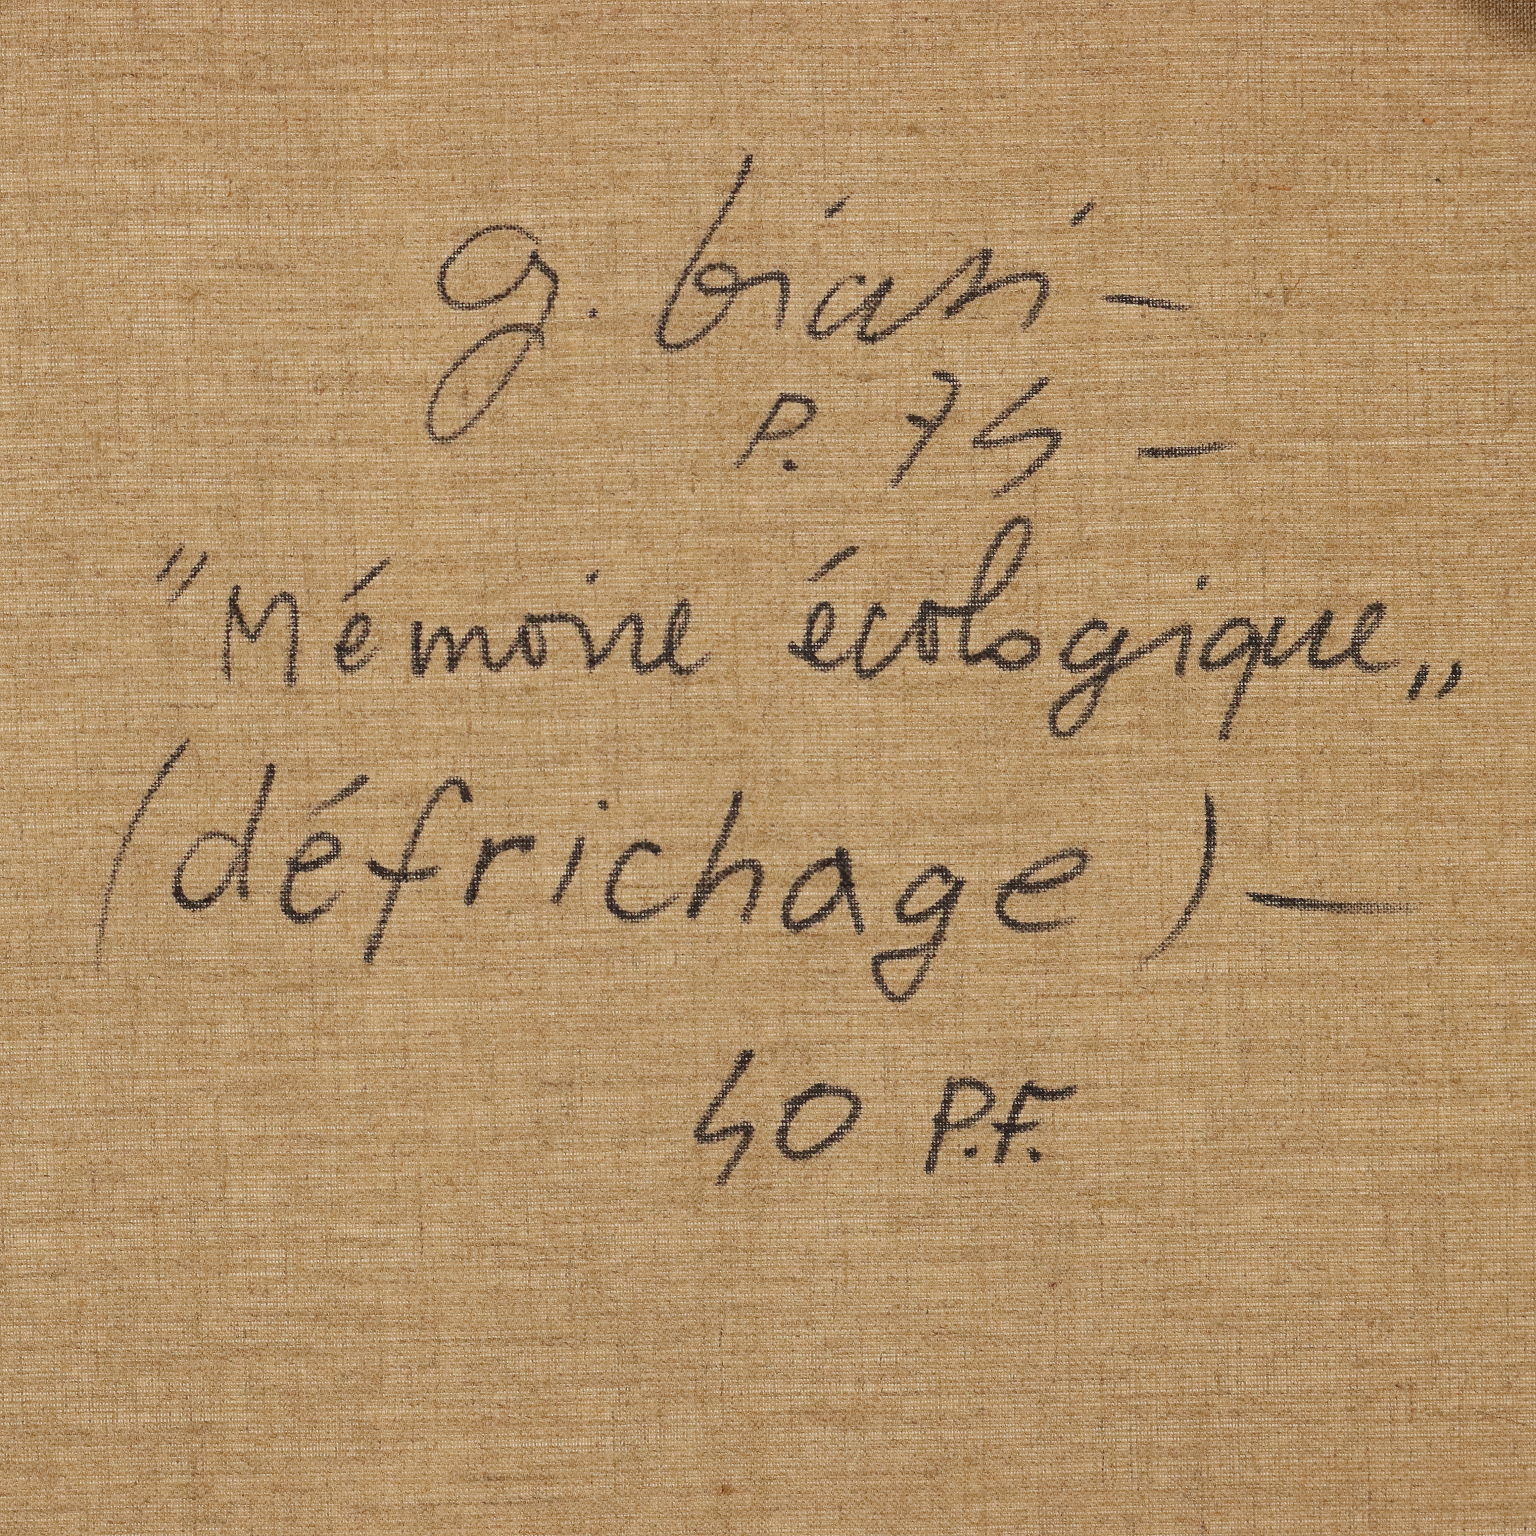 g. biasi —
P. 74 —
"Mémoire écologique„
(défrichage) —
40 P.F.